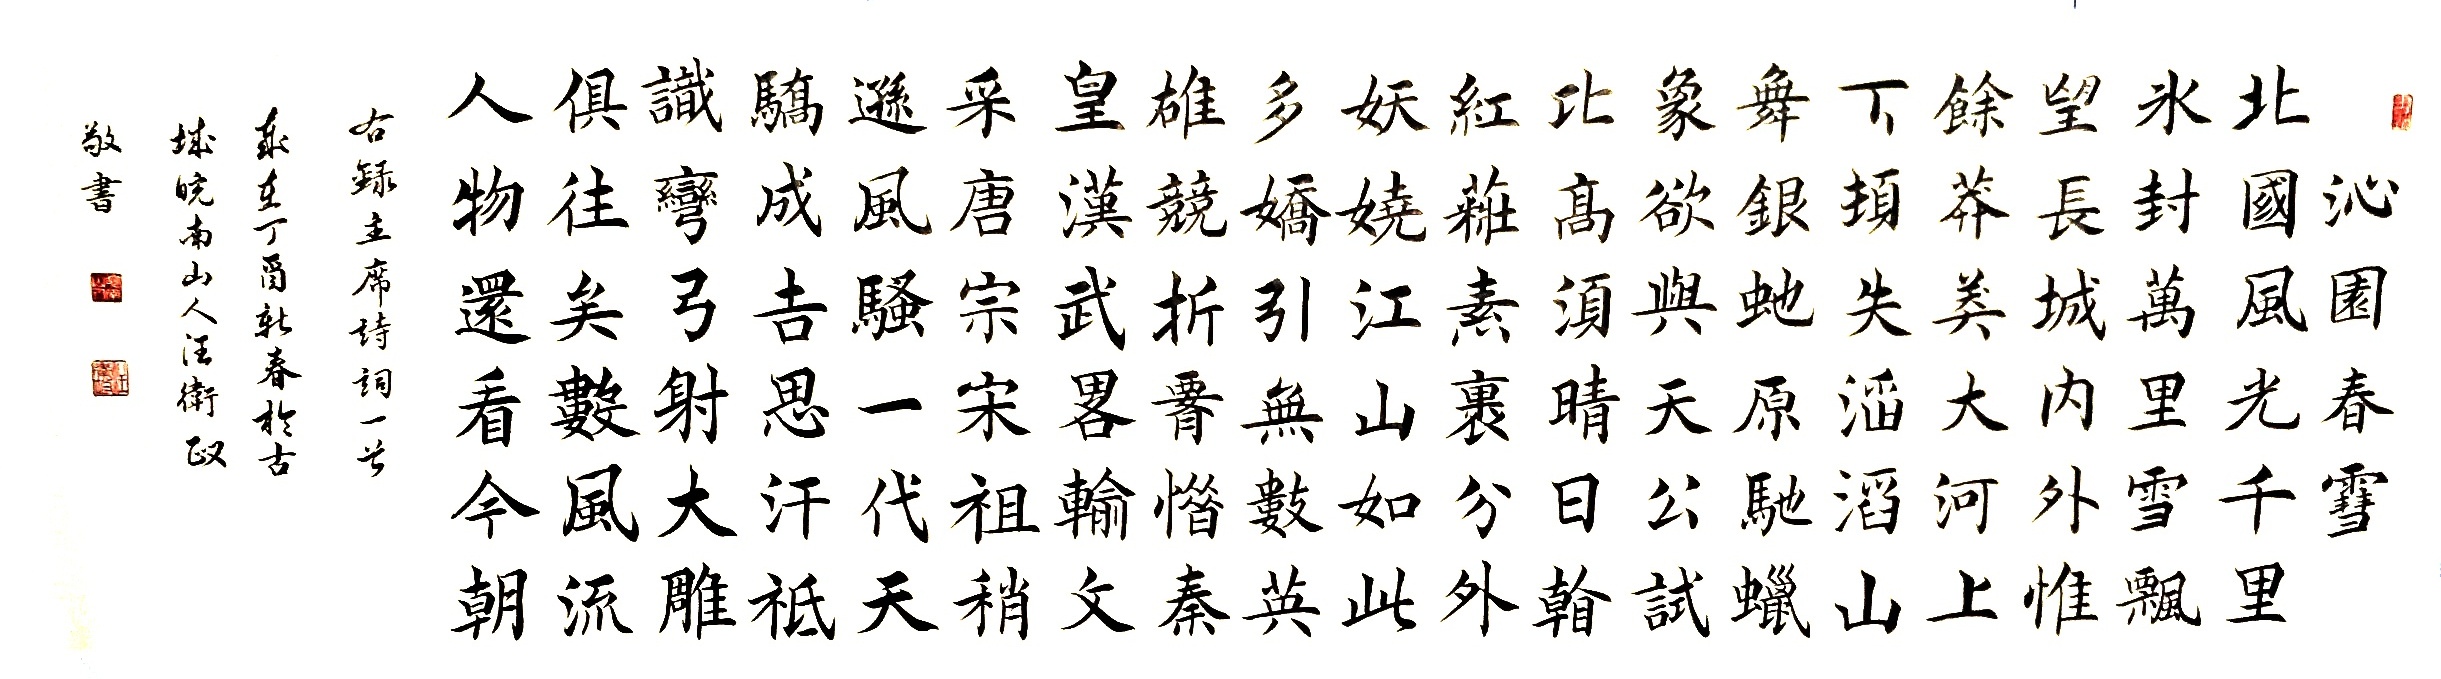 沁園春雪
北國風光千里
氷封萬里雪飄
望長城内外惟
餘莽莽大河上
丅頓失滔滔山
舞銀虵原馳蠟
象欲與天公試
比髙須晴日
紅素裹分外
妖嬈江山如此
多嬌引無數英
雄競折秦
皇漢武畧輸文
采唐宗宋祖稍
遜風騷一代天
驕成吉思汗祗
識彎弓射大雕
俱往矣數風流
人物還看今朝
右録主席詩詞一首
歲在丁酉新春於古
城皖南山人汪衛
敬書